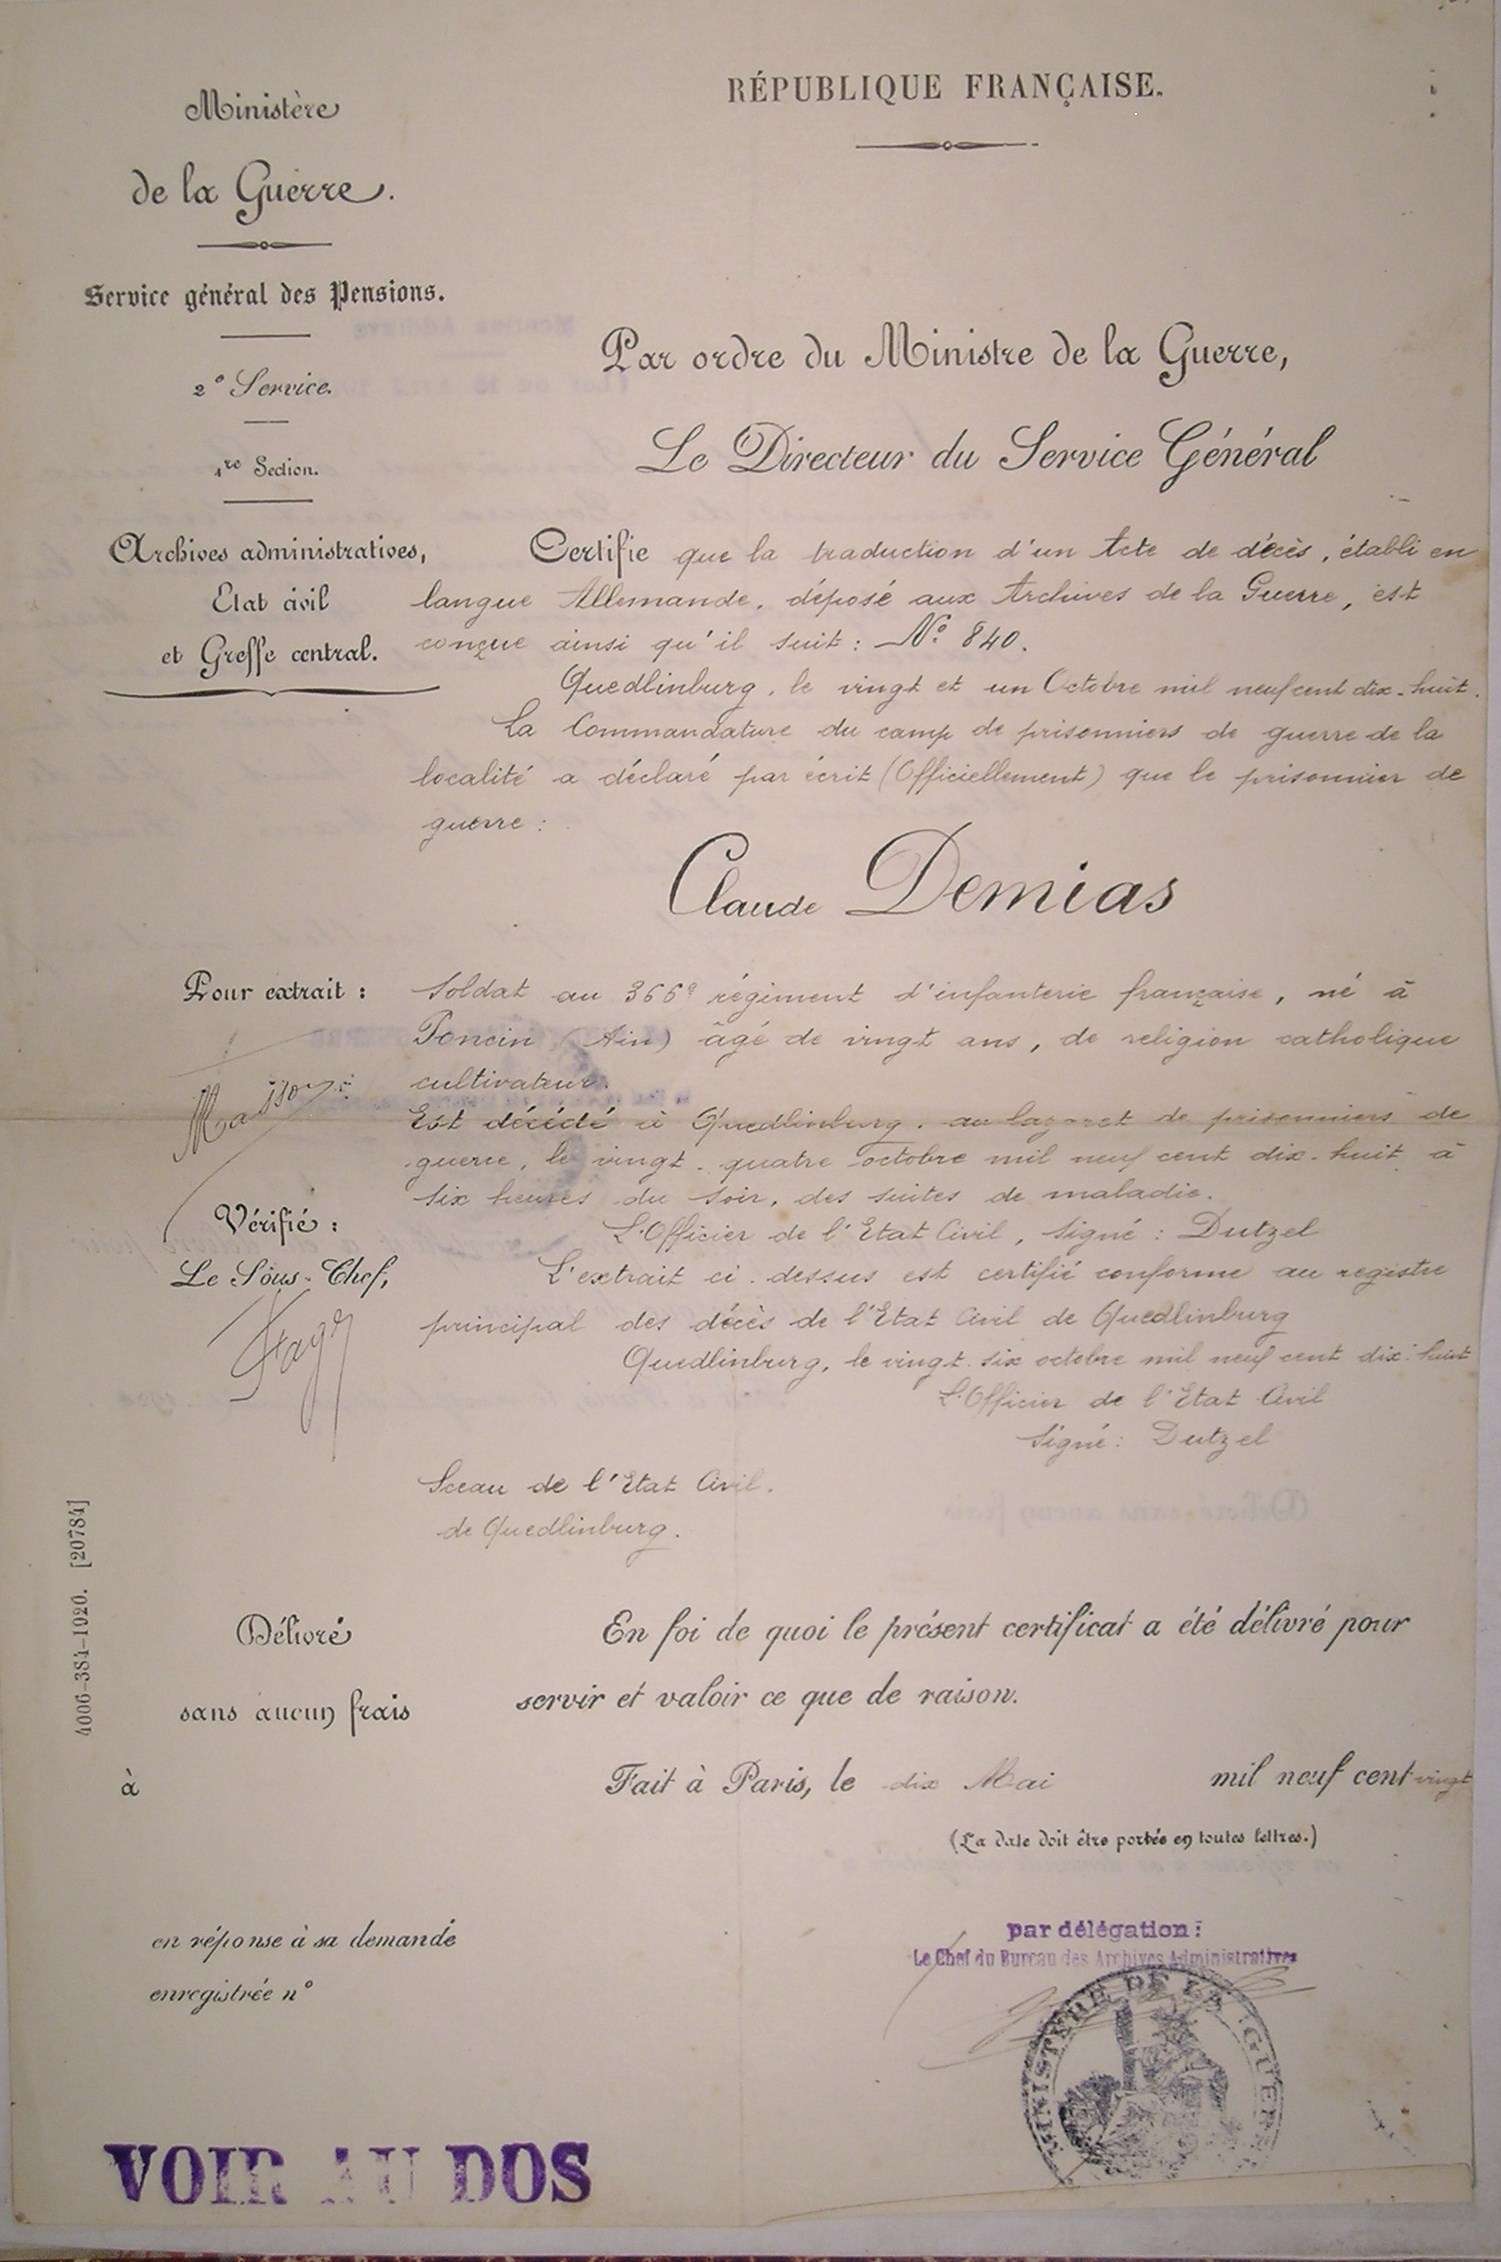 RÉPUBLIQUE FRANÇAISE.
Ministère
de la Guerre.
Service général des Pensions.
2e Service.
1re Section.
Archives administratives,
Etat civil
et Greffe central.
Par ordre du Ministre de la Guerre,
Le Directeur du Service Général
Certifie que la traduction d'un Acte de décès, établi en
langue Allemande, déposé aux Archives de la Guerre, est
conçue ainsi qu'il suit : No 840.
Quedlinburg, le vingt et un Octobre mil neuf cent dix-huit.
La Commandature du camp de prisonniers de guerre de la
localité a déclaré par écrit (Officiellement) que le prisonnier de
guerre :
Claude Demias
Pour extrait :
soldat au 366e régiment d'infanterie française, né à
Poncin (Ain) âgé de vingt ans, de religion catholique
cultivateur.
Est décédé à Quedlinburg, au lazaret de prisonniers de
guerre, le vingt-quatre octobre mil neuf cent dix-huit à
six heures du soir, des suites de maladie.
Vérifié :
Le Sous-Chef,
L'Officier de l'Etat Civil, signé : Dutzel
L'extrait ci-dessus est certifié conforme au registre
principal des décès de l'Etat Civil de Quedlinburg
Quedlinburg, le vingt-six octobre mil neuf cent dix-huit
L'Officier de l'Etat Civil
Signé : Dutzel
Sceau de l'Etat Civil.
de Quedlinburg.
4006-384-1920. [20784]
Délivré
sans aucun frais
à
En foi de quoi le présent certificat a été délivré pour
servir et valoir ce que de raison.
Fait à Paris, le dix Mai mil neuf cent vingt
(La date doit être portée en toutes lettres.)
en réponse à sa demande
enregistrée n°
par délégation :
Le Chef du Bureau des Archives Administratives
MINISTÈRE DE LA GUERRE
VOIR AU DOS